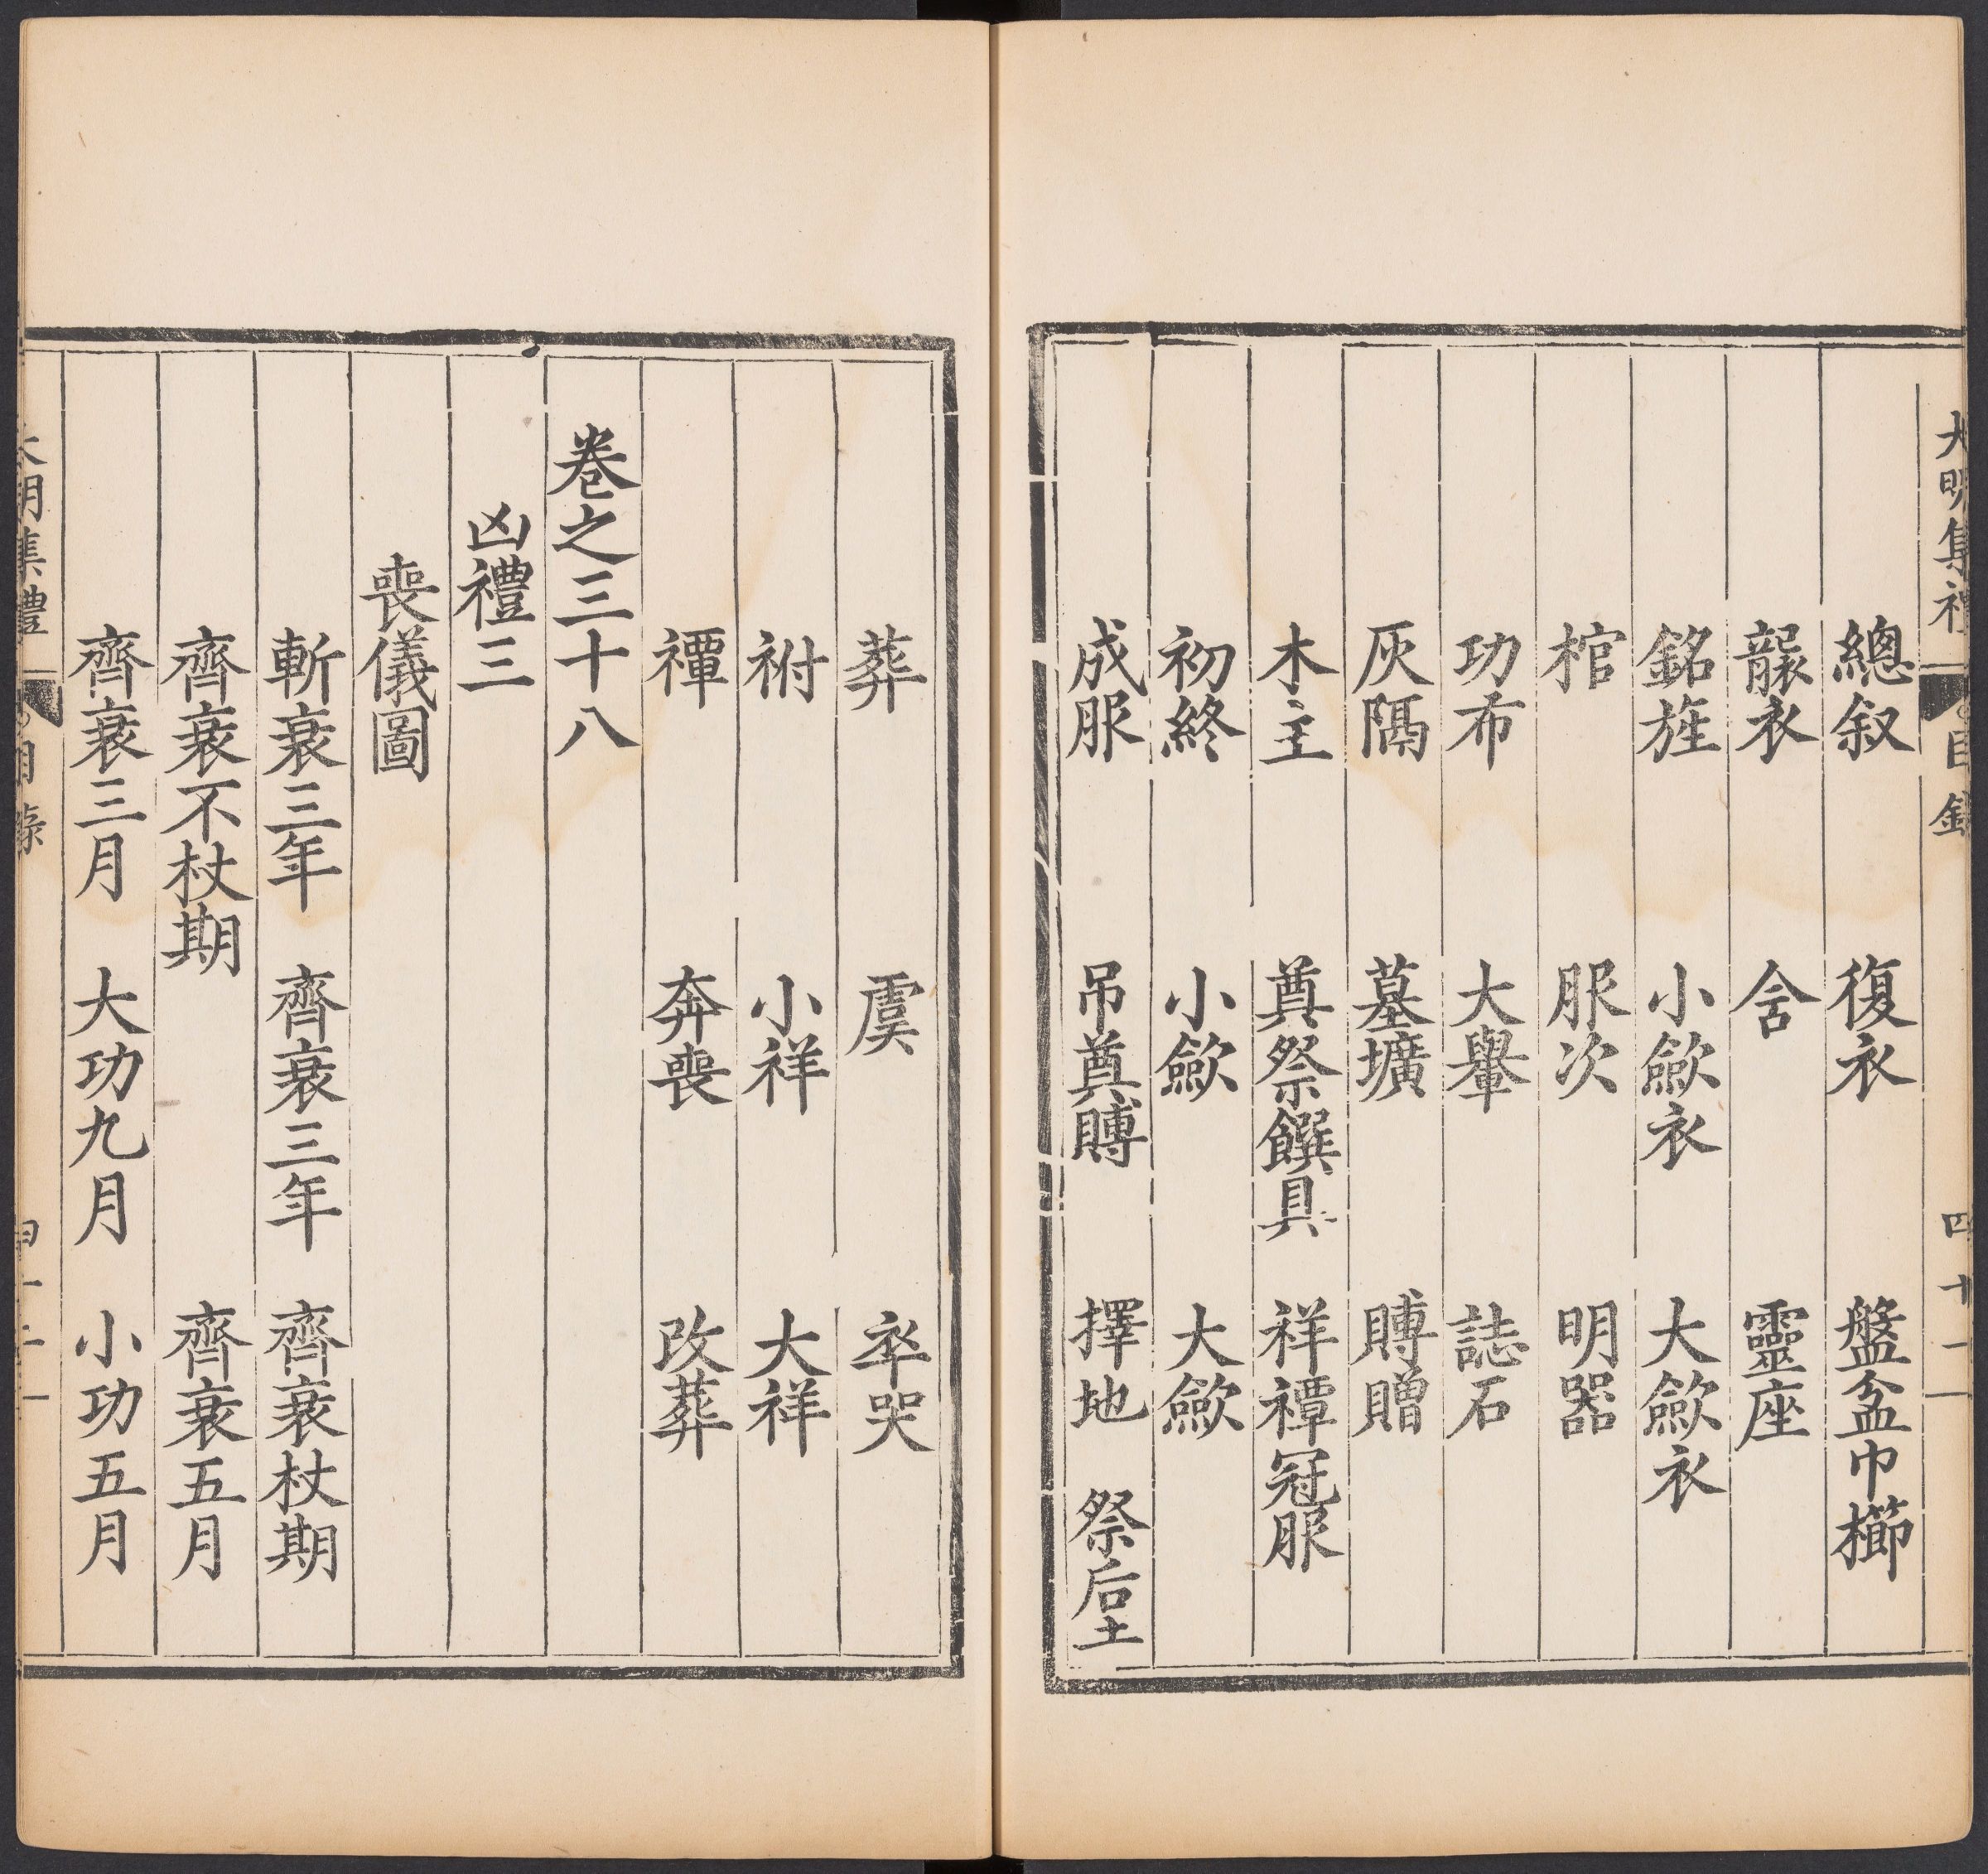 大明集禮 目錄 四十一
總叙 復衣 盤盆巾櫛
襲衣 含 靈座
銘旌 小歛衣 大歛衣
棺 服次 明器
功布 大轝 誌石
灰隔 墓壙 賻贈
木主 奠祭饌具 祥禫冠服
初終 小歛 大歛
成服 吊奠賻 擇地 祭后土
葬 虞 卒哭
祔 小祥 大祥
禫 奔喪 改葬
卷之三十八
凶禮三
喪儀圖
斬衰三年 齊衰三年 齊衰杖期
齊衰不杖期 齊衰五月
齊衰三月 大功九月 小功五月
大明集禮 目錄 四十二